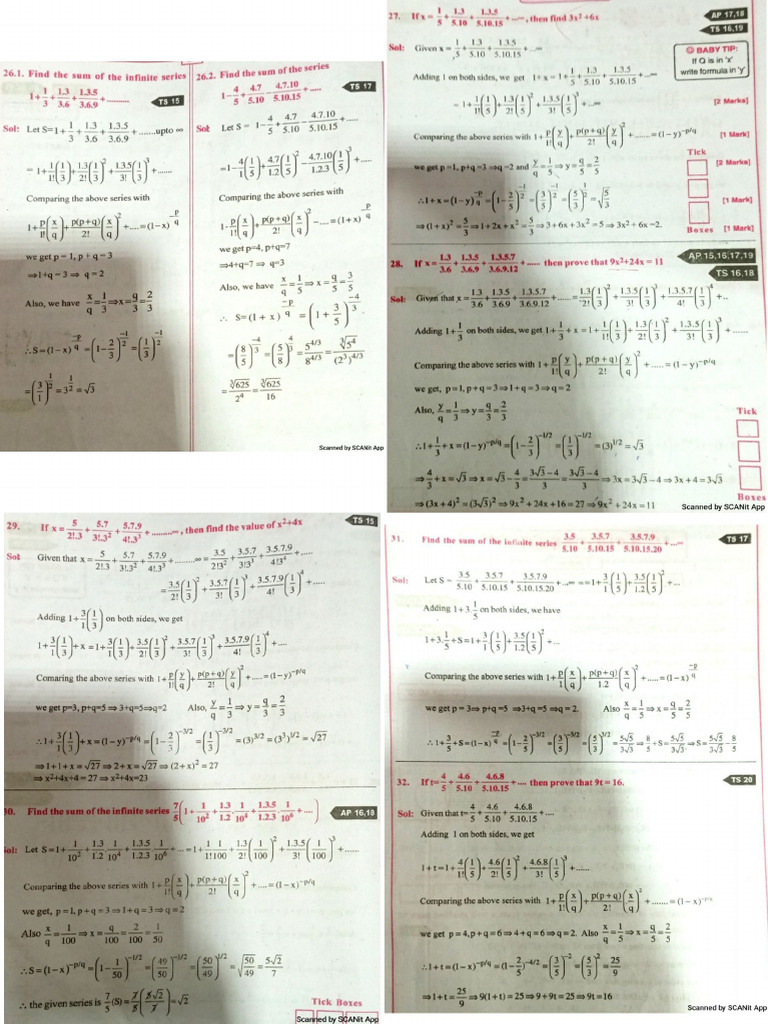 26.1. Find the sum of the infinite series
1+1/3+1.3/3.6+1.3.5/3.6.9+..........
TS 15
Sol: Let S=1+1/3+1.3/3.6+1.3.5/3.6.9+......upto ∞
= 1+1/1!(1/3)+1.3/2!(1/3)²+1.3.5/3!(1/3)³+......
Comparing the above series with
1+p/1!(x/q)+p(p+q)/2!(x/q)²+....=(1-x)^(-p/q)
we get p = 1, p + q = 3
⇒1+q = 3 ⇒ q = 2
Also, we have x/q=1/3⇒x=q/3=2/3
∴S=(1-x)^(-p/q)=(1-2/3)^(-1/2)=(1/3)^(-1/2)
=(3/1)^(1/2)=3^(1/2)=√3
26.2. Find the sum of the series
1-4/5+4.7/5.10-4.7.10/5.10.15+.....
TS 17
Sol: Let S = 1-4/5+4.7/5.10-4.7.10/5.10.15+.....
=1-4/1(1/5)+4.7/1.2(1/5)²-4.7.10/1.2.3(1/5)³+.....
Comparing the above series with
1-p/1!(x/q)+p(p+q)/2!(x/q)²-....=(1+x)^(-p/q)
we get p=4, p+q=7
⇒4+q=7 ⇒ q=3
Also, we have x/q=1/5⇒x=q/5=3/5
∴ S=(1+x)^(-p/q)=(1+3/5)^(-4/3)
=(8/5)^(-4/3)=(5/8)^(4/3)=5^(4/3)/8^(4/3)=∛5⁴/(2³)^(4/3)
=∛625/2⁴=∛625/16
Scanned by SCANit App
27. If x=1/5+1.3/5.10+1.3.5/5.10.15+....∞, then find 3x²+6x
AP 17,18
TS 16,19
Sol: Given x=1/5+1.3/5.10+1.3.5/5.10.15+...∞
BABY TIP:
If Q is in 'x'
write formula in 'y'
Adding 1 on both sides, we get 1+x=1+1/5+1.3/5.10+1.3.5/5.10.15+...∞
=1+1/1!(1/5)+1.3/2!(1/5)²+1.3.5/3!(1/5)³+...∞
[2 Marks]
Comparing the above series with 1+p/1!(y/q)+p(p+q)/2!(y/q)²+......=(1-y)^(-p/q)
[1 Mark]
Tick
we get p=1, p+q=3 ⇒q=2 and y/q=1/5⇒y=q/5=2/5
[2 Marks]
∴1+x=(1-y)^(-p/q)=(1-2/5)^(-1/2)=(3/5)^(-1/2)=(5/3)^(1/2)=√(5/3)
[1 Mark]
⇒(1+x)²=5/3⇒1+2x+x²=5/3⇒3+6x+3x²=5⇒3x²+6x=2.
Boxes [1 Mark]
28. If x=1.3/3.6+1.3.5/3.6.9+1.3.5.7/3.6.9.12+...... then prove that 9x²+24x = 11
AP 15,16,17,19
TS 16,18
Sol: Given that x=1.3/3.6+1.3.5/3.6.9+1.3.5.7/3.6.9.12+......=1.3/2!(1/3)²+1.3.5/3!(1/3)³+1.3.5.7/4!(1/3)⁴+..
Adding 1+1/3 on both sides, we get 1+1/3+x=1+1/1!(1/3)+1.3/2!(1/3)²+1.3.5/3!(1/3)³+......
Comparing the above series with 1+p/1!(y/q)+p(p+q)/2!(y/q)²+.....=(1-y)^(-p/q)
we get, p=1, p+q=3⇒1+q=3⇒q=2
Also, y/q=1/3⇒y=q/3=2/3
Tick
∴1+1/3+x=(1-y)^(-p/q)=(1-2/3)^(-1/2)=(1/3)^(-1/2)=(3)^(1/2)=√3
⇒4/3+x=√3⇒x=√3-4/3=(3√3-4)/3=(3√3-4)/3⇒3x=3√3-4⇒3x+4=3√3
Boxes
⇒(3x+4)²=(3√3)²⇒9x²+24x+16=27⇒9x²+24x=11
Scanned by SCANit App
29. If x=5/2!.3+5.7/3!.3²+5.7.9/4!.3³+.........∞, then find the value of x²+4x
TS 15
Sol: Given that x=5/2!.3+5.7/3!.3²+5.7.9/4!.3³+........∞=3.5/2!3²+3.5.7/3!3³+3.5.7.9/4!3⁴+....
=3.5/2!(1/3)²+3.5.7/3!(1/3)³+3.5.7.9/4!(1/3)⁴+.....
Adding 1+3/1(1/3) on both sides, we get
1+3/1(1/3)+x=1+3/1(1/3)+3.5/2!(1/3)²+3.5.7/3!(1/3)³+3.5.7.9/4!(1/3)⁴+....
Comaring the above series with 1+p/1!(y/q)+p(p+q)/2!(y/q)²+.....=(1-y)^(-p/q)
we get p=3, p+q=5⇒3+q=5⇒q=2 Also, y/q=1/3⇒y=q/3=2/3
∴1+3/1(1/3)+x=(1-y)^(-p/q)=(1-2/3)^(-3/2)=(1/3)^(-3/2)=(3)^(3/2)=(3³)^(1/2)=√27
⇒1+1+x=√27⇒2+x=√27⇒(2+x)²=27
⇒x²+4x+4=27⇒x²+4x=23
30. Find the sum of the infinite series 7/5(1+1/10²+1.3/1.2.1/10⁴+1.3.5/1.2.3.1/10⁶+....)
AP 16,18
Sol: Let S=1+1/10²+1.3/1.2.1/10⁴+1.3.5/1.2.3.1/10⁶+...=1+1/1!1/100+1.3/2!(1/100)²+1.3.5/3!(1/100)³+......
Comparing the above series with 1+p/1!(x/q)+p(p+q)/2!(x/q)²+....=(1-x)^(-p/q)
we get, p=1, p+q=3⇒1+q=3⇒q=2
Also x/q=1/100⇒x=q/100=2/100=1/50
∴S=(1-x)^(-p/q)=(1-1/50)^(-1/2)=(49/50)^(-1/2)=(50/49)^(1/2)=√(50/49)=5√2/7
∴ the given series is 7/5(S)=7/5(5√2/7)=√2
Tick Boxes
Scanned by SCANit App
31. Find the sum of the infinite series 3.5/5.10+3.5.7/5.10.15+3.5.7.9/5.10.15.20+...∞
TS 17
Sol: Let S=3.5/5.10+3.5.7/5.10.15+3.5.7.9/5.10.15.20+...∞==1+3/1(1/5)+3.5/1.2(1/5)²+...
Adding 1+3.1/5 on both sides, we have
1+3.1/5+S=1+3/1(1/5)+3.5/1.2(1/5)²+...
Comparing the above series with 1+p/1(x/q)+p(p+q)/1.2(x/q)²+.....=(1-x)^(-p/q)
we get p=3⇒p+q=5⇒3+q=5⇒q=2. Also x/q=1/5⇒x=q/5=2/5
∴1+3/5+S=(1-x)^(-p/q)=(1-2/5)^(-3/2)=(3/5)^(-3/2)=(5/3)^(3/2)=5√5/3√3⇒8/5+S=5√5/3√3⇒S=5√5/3√3-8/5
32. If t=4/5+4.6/5.10+4.6.8/5.10.15+.... then prove that 9t=16.
TS 20
Sol: Given that t=4/5+4.6/5.10+4.6.8/5.10.15+....
Adding 1 on both sides, we get
1+t=1+4/1!(1/5)+4.6/2!(1/5)²+4.6.8/3!(1/5)³+......
Comparing the above series with 1+p/1!(x/q)+p(p+q)/2!(x/q)²+.......=(1-x)^(-p/q)
we get p=4, p+q=6⇒4+q=6⇒q=2. Also x/q=1/5⇒x=q/5=2/5
∴1+t=(1-x)^(-p/q)=(1-2/5)^(-4/2)=(3/5)^(-2)=(5/3)²=25/9
⇒1+t=25/9⇒9(1+t)=25⇒9+9t=25⇒9t=16
Scanned by SCANit App